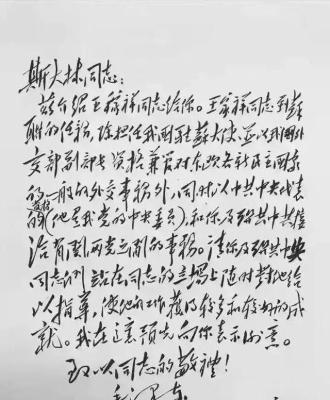 斯大林同志：
兹介绍王稼祥同志给你。王稼祥同志到苏
联的任务，除担任我国驻苏大使，並以我国外
交部副部长资格兼管对东欧各新民主国家
的一般的外交事务外，同时以中共中央代表
的(他是我党的中央委员)，和你及联共中央接
洽有关两党之间的事务。请你及联共中央
同志们站在同志的立场上随时对他给
以指导，使他的工作獲得较多和较好的成
就。我在这里预先向你表示謝意。
致以同志的敬禮！
毛泽东